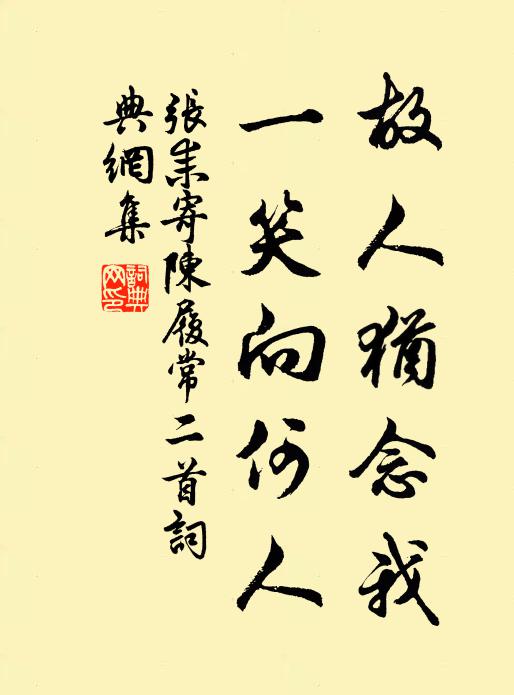 故人猶念我
一笑向何人
張耒寄陳履常二首詞
典網集
詞典
网印